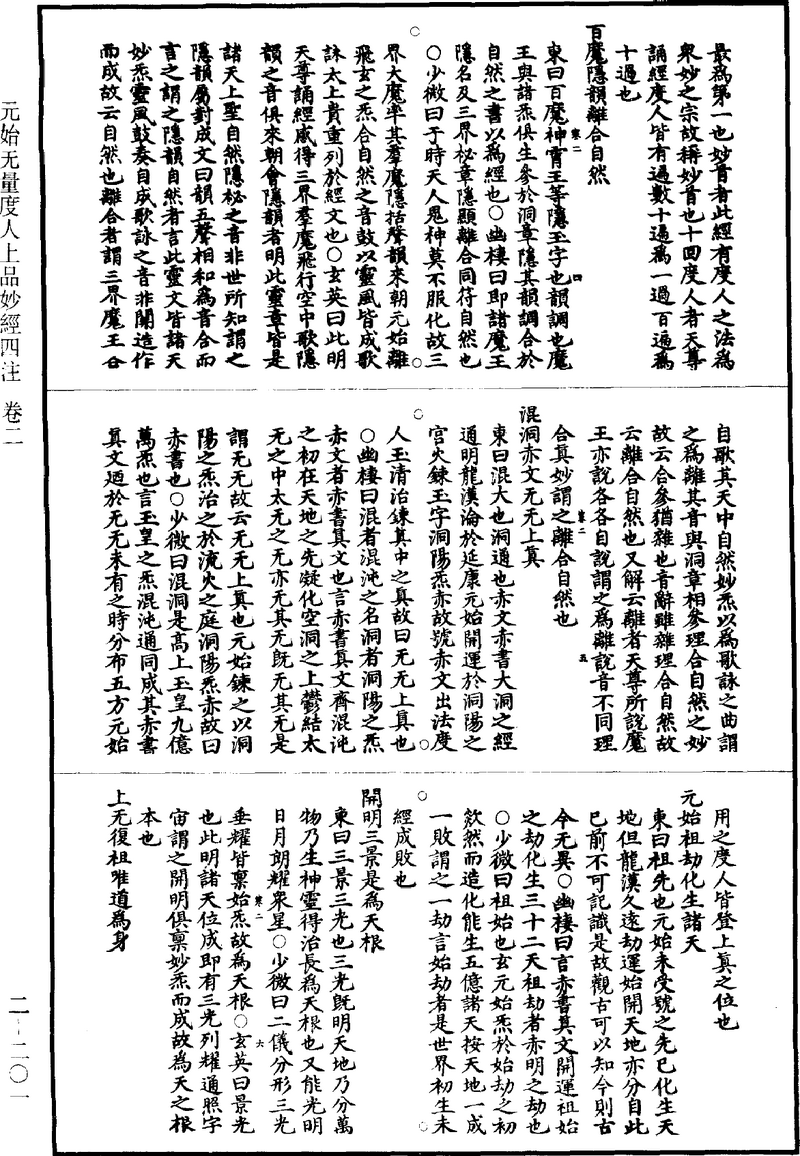 最為第一也妙首者此經有度人之法為
衆妙之宗故稱妙首也十回度人者天尊
誦經度人皆有遍數十過為一過百遍為
十過也
百魔隱韻離合自然
東曰百魔神霄王等隱玉字也韻調也魔
王與諸炁俱生參於洞章隱其韻調合於
自然之書以為經也○幽棲曰即諸魔王
隱名及三界祕章隱顯離合同符自然也
○少微曰于時天人鬼神莫不服化故三
界大魔率其羣魔隱括聲韻來朝元始離
飛玄之炁合自然之音鼓以靈風皆成歌
詠太上貴重列於經文也○玄英曰此明
天尊誦經感得三界羣魔飛行空中歌隱
韻之音俱來朝會隱韻者明此靈章皆是
諸天上聖自然隱秘之音非世所知謂之
隱韻屬對成文曰韻五聲相和為音合而
言之謂之隱韻自然者言此靈文皆諸天
妙炁靈風鼓奏自成歌詠之音非關造作
而成故云自然也離合者謂三界魔王各
自歌其天中自然妙炁以為歌詠之曲謂
之為離其音與洞章相參理合自然之妙
故云合參猶雜也音辭雖雜理合自然故
云離合自然也又解云離者天尊所說魔
王亦說各各自說謂之為離說音不同理
合真妙謂之離合自然也
混洞赤文无无上真
東曰混大也洞通也赤文赤書大洞之經
通明龍漢淪於延康元始開運於洞陽之
宮火鍊玉字洞陽炁赤故號赤文出法度
人玉清治鍊其中之真故曰无无上真也
○幽棲曰混者混沌之名洞者洞陽之炁
赤文者赤書真文也言赤書真文齊混沌
之初在天地之先凝化空洞之上鬱結太
无之中太无之无亦无其无既无其无是
謂无无故云无无上真也元始鍊之以洞
陽之炁治之於流火之庭洞陽炁赤故曰
赤書也○少微曰混洞是高上玉皇九億
萬炁也言玉皇之炁混沌通同成其赤書
真文廼於无无未有之時分布五方元始
用之度人皆登上真之位也
元始祖劫化生諸天
東曰祖先也元始未受號之先已化生天
地但龍漢久遠劫運始開天地亦分自此
已前不可記識是故觀古可以知今則古
今无異○幽棲曰言赤書真文開運祖始
之劫化生三十二天祖劫者亦明之劫也
○少微曰祖始也玄元始炁於始劫之初
欻然而造化能生五億諸天按天地一成
一敗謂之一劫言始劫者是世界初生未
經成敗也
開明三景是為天根
東曰三景三光也三光既明天地乃分萬
物乃生神靈得治長為天根也又能光明
日月朗耀衆星○少微曰二儀分形三光
垂耀皆稟始炁故為天根○玄英曰景光
也此明諸天位成即有三光列耀通照宇
宙謂之開明俱稟妙炁而成故為天之根
本也
上无復祖唯道為身
元始无量度人上品妙經四注 卷二
二-二〇一